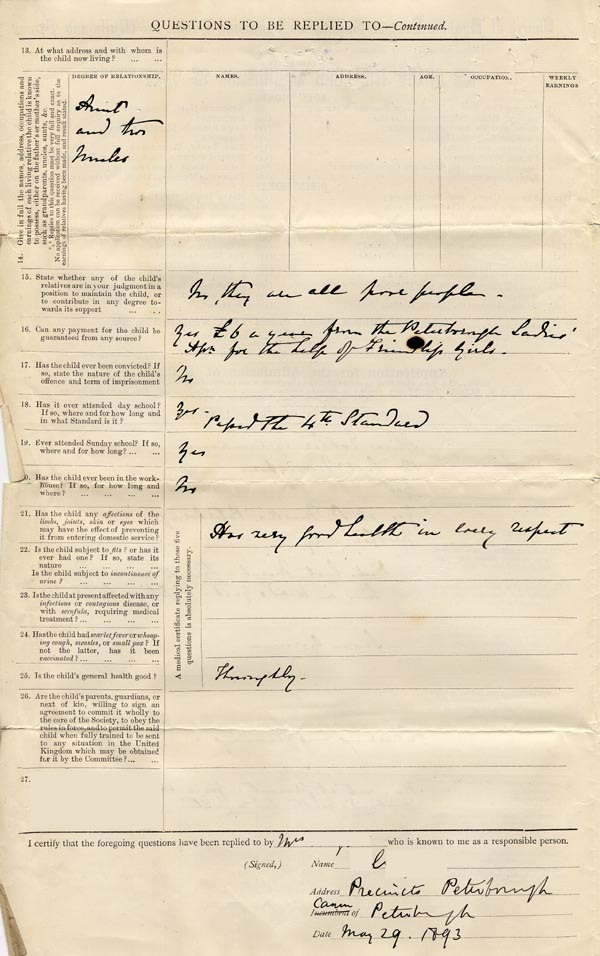 QUESTIONS TO BE REPLIED TO—Continued.
13. At what address and with whom is
the child now living? ... ...
14. Give in full the names, address, occupations and
earnings of each living relative the child is known
to possess, either on the father's or mother's side,
such as grandparents, uncles, aunts, &c.
*** Replies to this question must be very full and exact.
No application can be received without full enquiry as to the
earnings of relatives having been made, and result stated.
DEGREE OF RELATIONSHIP. NAMES. ADDRESS. AGE. OCCUPATION. WEEKLY
EARNINGS
Aunt
and two
Uncles
15. State whether any of the child's
relatives are in your judgment in a
position to maintain the child, or
to contribute in any degree to-
wards its support ... ...
No, they are all poor people -
16. Can any payment for the child be
guaranteed from any source?
Yes £6 a year from the Peterborough Ladies'
Assn. for the help of Friendless Girls.
17. Has the child ever been convicted? If
so, state the nature of the child's
offence and term of imprisonment
No
18. Has it ever attended day school?
If so, where and for how long and
in what Standard is it? ...
Yes - Passed the 4th Standard
19. Ever attended Sunday school? If so,
where and for how long? ... ...
Yes
0. Has the child ever been in the work-
house? If so, for how long and
where? ... ... ... ...
No
21. Has the child any affections of the
limbs, joints, skin or eyes which
may have the effect of preventing
it from entering domestic service?
22. Is the child subject to fits? or has it
ever had one? If so, state its
nature ... ... ... ...
Is the child subject to incontinence of
urine? ... ... ... ...
23. Is the child at present affected with any
infectious or contagious disease, or
with scrofula, requiring medical
treatment? ... ... ... ...
24. Has the child had scarlet fever or whoop-
ing cough, measles, or small pox? If
not the latter, has it been
vaccinated? ... ... ... ...
25. Is the child's general health good? ...
A medical certificate replying to these five
questions is absolutely necessary.
Has very good health in every respect
Thoroughly.
26. Are the child's parents, guardians, or
next of kin, willing to sign an
agreement to commit it wholly to
the care of the Society, to obey the
rules in force, and to permit the said
child when fully trained to be sent
to any situation in the United
Kingdom which may be obtained
for it by the Committee? ... ...
27.
I certify that the foregoing questions have been replied to by Mrs who is known to me as a responsible person.
(Signed,) Name
Address Precincts Peterborough
Canon
Incumbent of Peterborough
Date May 29. 1893